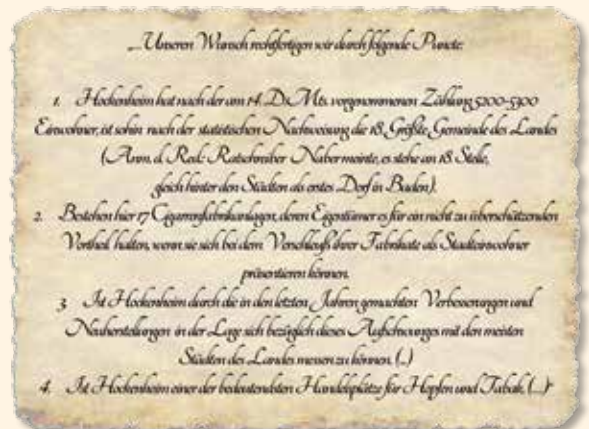 „...Unseren Wunsch rechtfertigen wir durch folgende Puncte:
1. Hockenheim hat nach der am 14. D. Mts. vorgenommenen Zählung 5200-5300
Einwohner, ist sohin nach der statistischen Nachweisung die 18. Größte Gemeinde des Landes
(Anm. d. Red.: Ratschreiber Naber meinte, es stehe an 18. Stelle,
gleich hinter den Städten als erstes Dorf in Baden).
2. Bestehen hier 17 Cigarrenfabrikanlagen, deren Eigentümer es für ein nicht zu überschätzenden
Vortheil halten, wenn sie sich bei dem Verschleiß ihrer Fabrikate als Stadteinwohner
präsentieren können.
3. Ist Hockenheim durch die in den letzten Jahren gemachten Verbesserungen und
Neuherstellungen in der Lage sich bezüglich dieses Aufschwunges mit den meisten
Städten des Landes messen zu können. (...)
4. Ist Hockenheim einer der bedeutendsten Handelsplätze für Hopfen und Tabak. (...)“